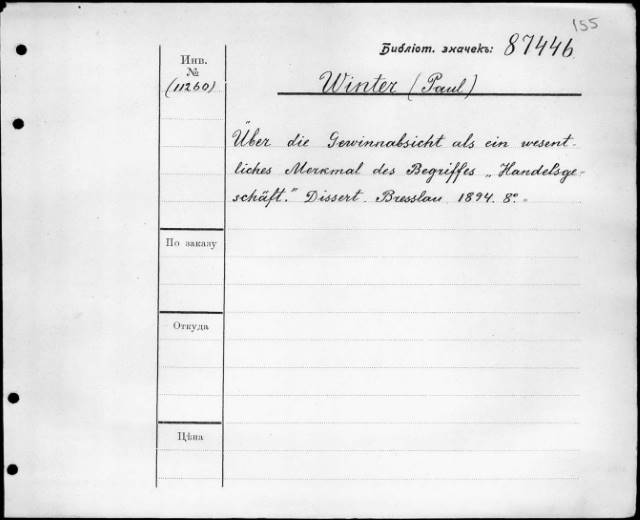 155
Библіот. значекъ: 87446
Инв.
№
(11260)
Winter (Paul)
Über die Gewinnabsicht als ein wesent-
liches Merkmal des Begriffes „Handelsge-
schäft." Dissert. Bresslau 1894. 8°.
По заказу
Откуда
Цѣна